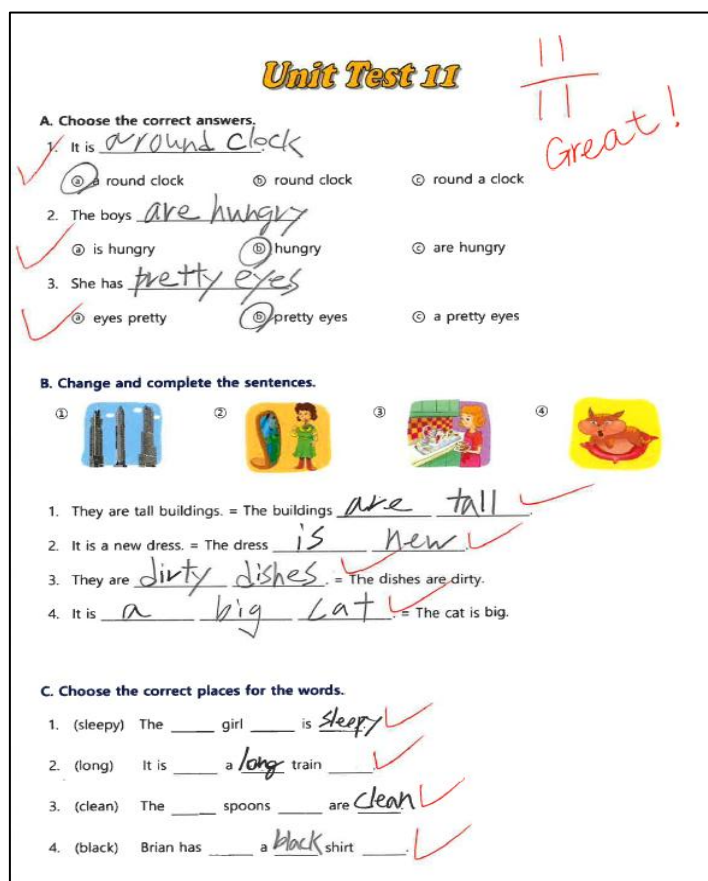 Unit Test 11
11
11
Great!
A. Choose the correct answers.
1. It is around clock
ⓐ a round clock ⓑ round clock ⓒ round a clock
2. The boys are hungry
ⓐ is hungry ⓑ hungry ⓒ are hungry
3. She has pretty eyes
ⓐ eyes pretty ⓑ pretty eyes ⓒ a pretty eyes
B. Change and complete the sentences.
① ② ③ ④
1. They are tall buildings. = The buildings are tall.
2. It is a new dress. = The dress is new.
3. They are dirty dishes. = The dishes are dirty.
4. It is a big cat. = The cat is big.
C. Choose the correct places for the words.
1. (sleepy) The ____ girl ____ is sleepy
2. (long) It is ____ a long train ____.
3. (clean) The ____ spoons ____ are clean
4. (black) Brian has ____ a black shirt ____.